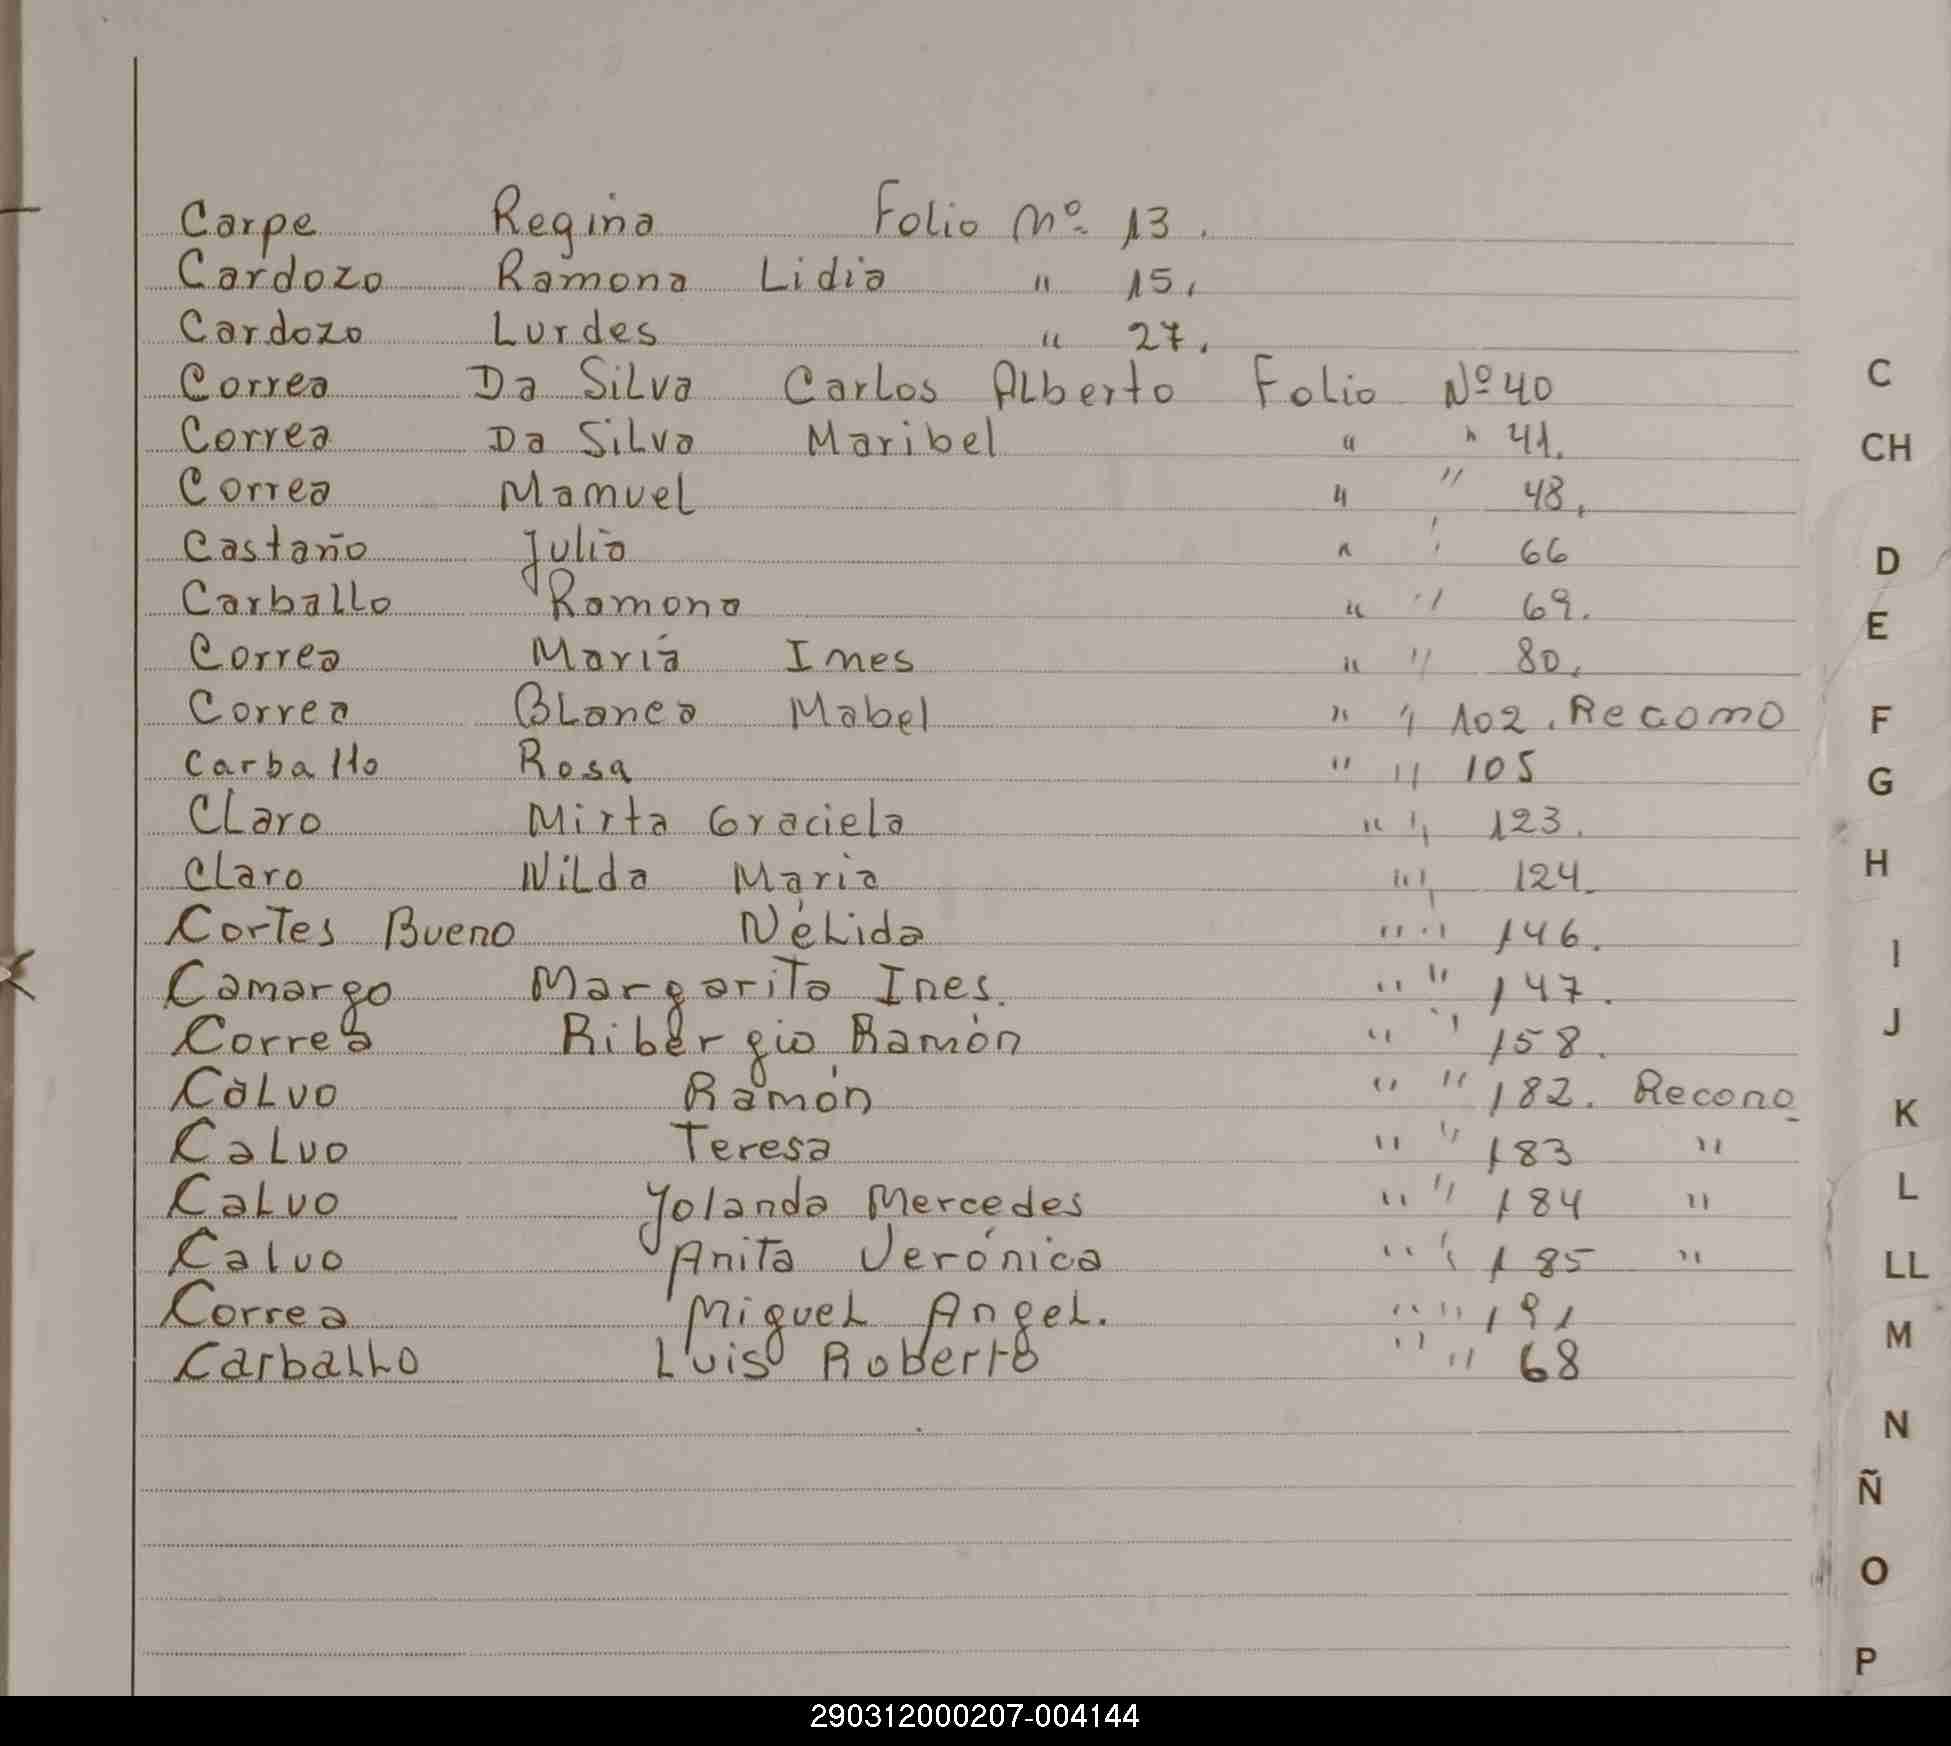 Carpe Regina Folio Nº 13.
Cardozo Ramona Lidia " 15.
Cardozo Lurdes " 27.
Correa Da Silva Carlos Alberto Folio Nº 40
Correa Da Silva Maribel " " 41.
Correa Manuel " " 48.
Castaño Julia " " 66
Carballo Ramona " " 69.
Correa María Ines " " 80.
Correa Blanca Mabel " " 102. Recono
Carballo Rosa " " 105
Claro Mirta Graciela " " 123.
Claro Nilda Maria " " 124.
Cortes Bueno Nélida " " 146.
Camargo Margarita Ines. " " 147.
Correa Ribergio Ramón " " 158.
Calvo Ramón " " 182. Recono
Calvo Teresa " " 183 "
Calvo Yolanda Mercedes " " 184 "
Calvo Anita Verónica " " 185 "
Correa Miguel Angel. " " 191
Carballo Luis Roberto " " 68
C
CH
D
E
F
G
H
I
J
K
L
LL
M
N
Ñ
O
P
290312000207-004144